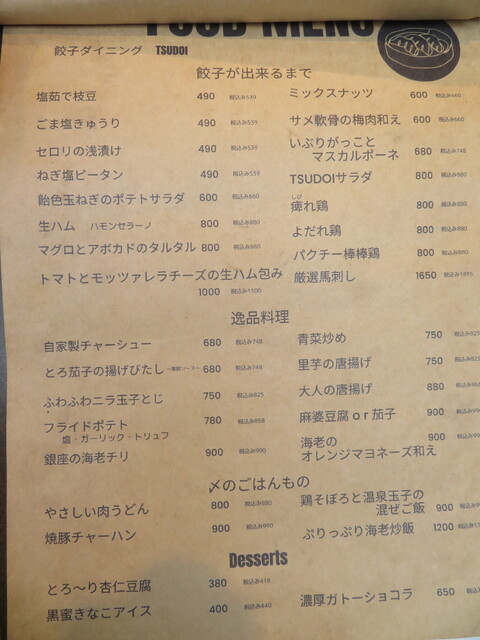 FOOD MENU
餃子ダイニング TSUDOI
餃子が出来るまで
塩茹で枝豆 490 税込み539
ごま塩きゅうり 490 税込み539
セロリの浅漬け 490 税込み539
ねぎ塩ピータン 490 税込み539
飴色玉ねぎのポテトサラダ 600 税込み660
生ハム ハモンセラーノ 800 税込み880
マグロとアボカドのタルタル 800 税込み880
トマトとモッツァレラチーズの生ハム包み
1000 税込み1100
ミックスナッツ 600 税込み660
サメ軟骨の梅肉和え 600 税込み660
いぶりがっこと
マスカルポーネ 680 税込み748
TSUDOIサラダ 800 税込み880
しび
痺れ鶏 800 税込み880
よだれ鶏 800 税込み880
パクチー棒棒鶏 800 税込み880
厳選馬刺し 1650 税込み1815
逸品料理
自家製チャーシュー 680 税込み748
とろ茄子の揚げびたし 680 税込み748
ふわふわニラ玉子とじ 750 税込み825
フライドポテト 780 税込み858
塩・ガーリック・トリュフ
銀座の海老チリ 900 税込み990
青菜炒め 750 税込み825
里芋の唐揚げ 750 税込み825
大人の唐揚げ 880 税込み
麻婆豆腐 or 茄子 900 税込み
海老の 900 税込み
オレンジマヨネーズ和え
〆のごはんもの
やさしい肉うどん 800 税込み880
焼豚チャーハン 900 税込み990
鶏そぼろと温泉玉子の
混ぜご飯 900 税込み
ぷりっぷり海老炒飯 1200 税込み
Desserts
とろ〜り杏仁豆腐 380 税込み418
黒蜜きなこアイス 400 税込み440
濃厚ガトーショコラ 650 税込み